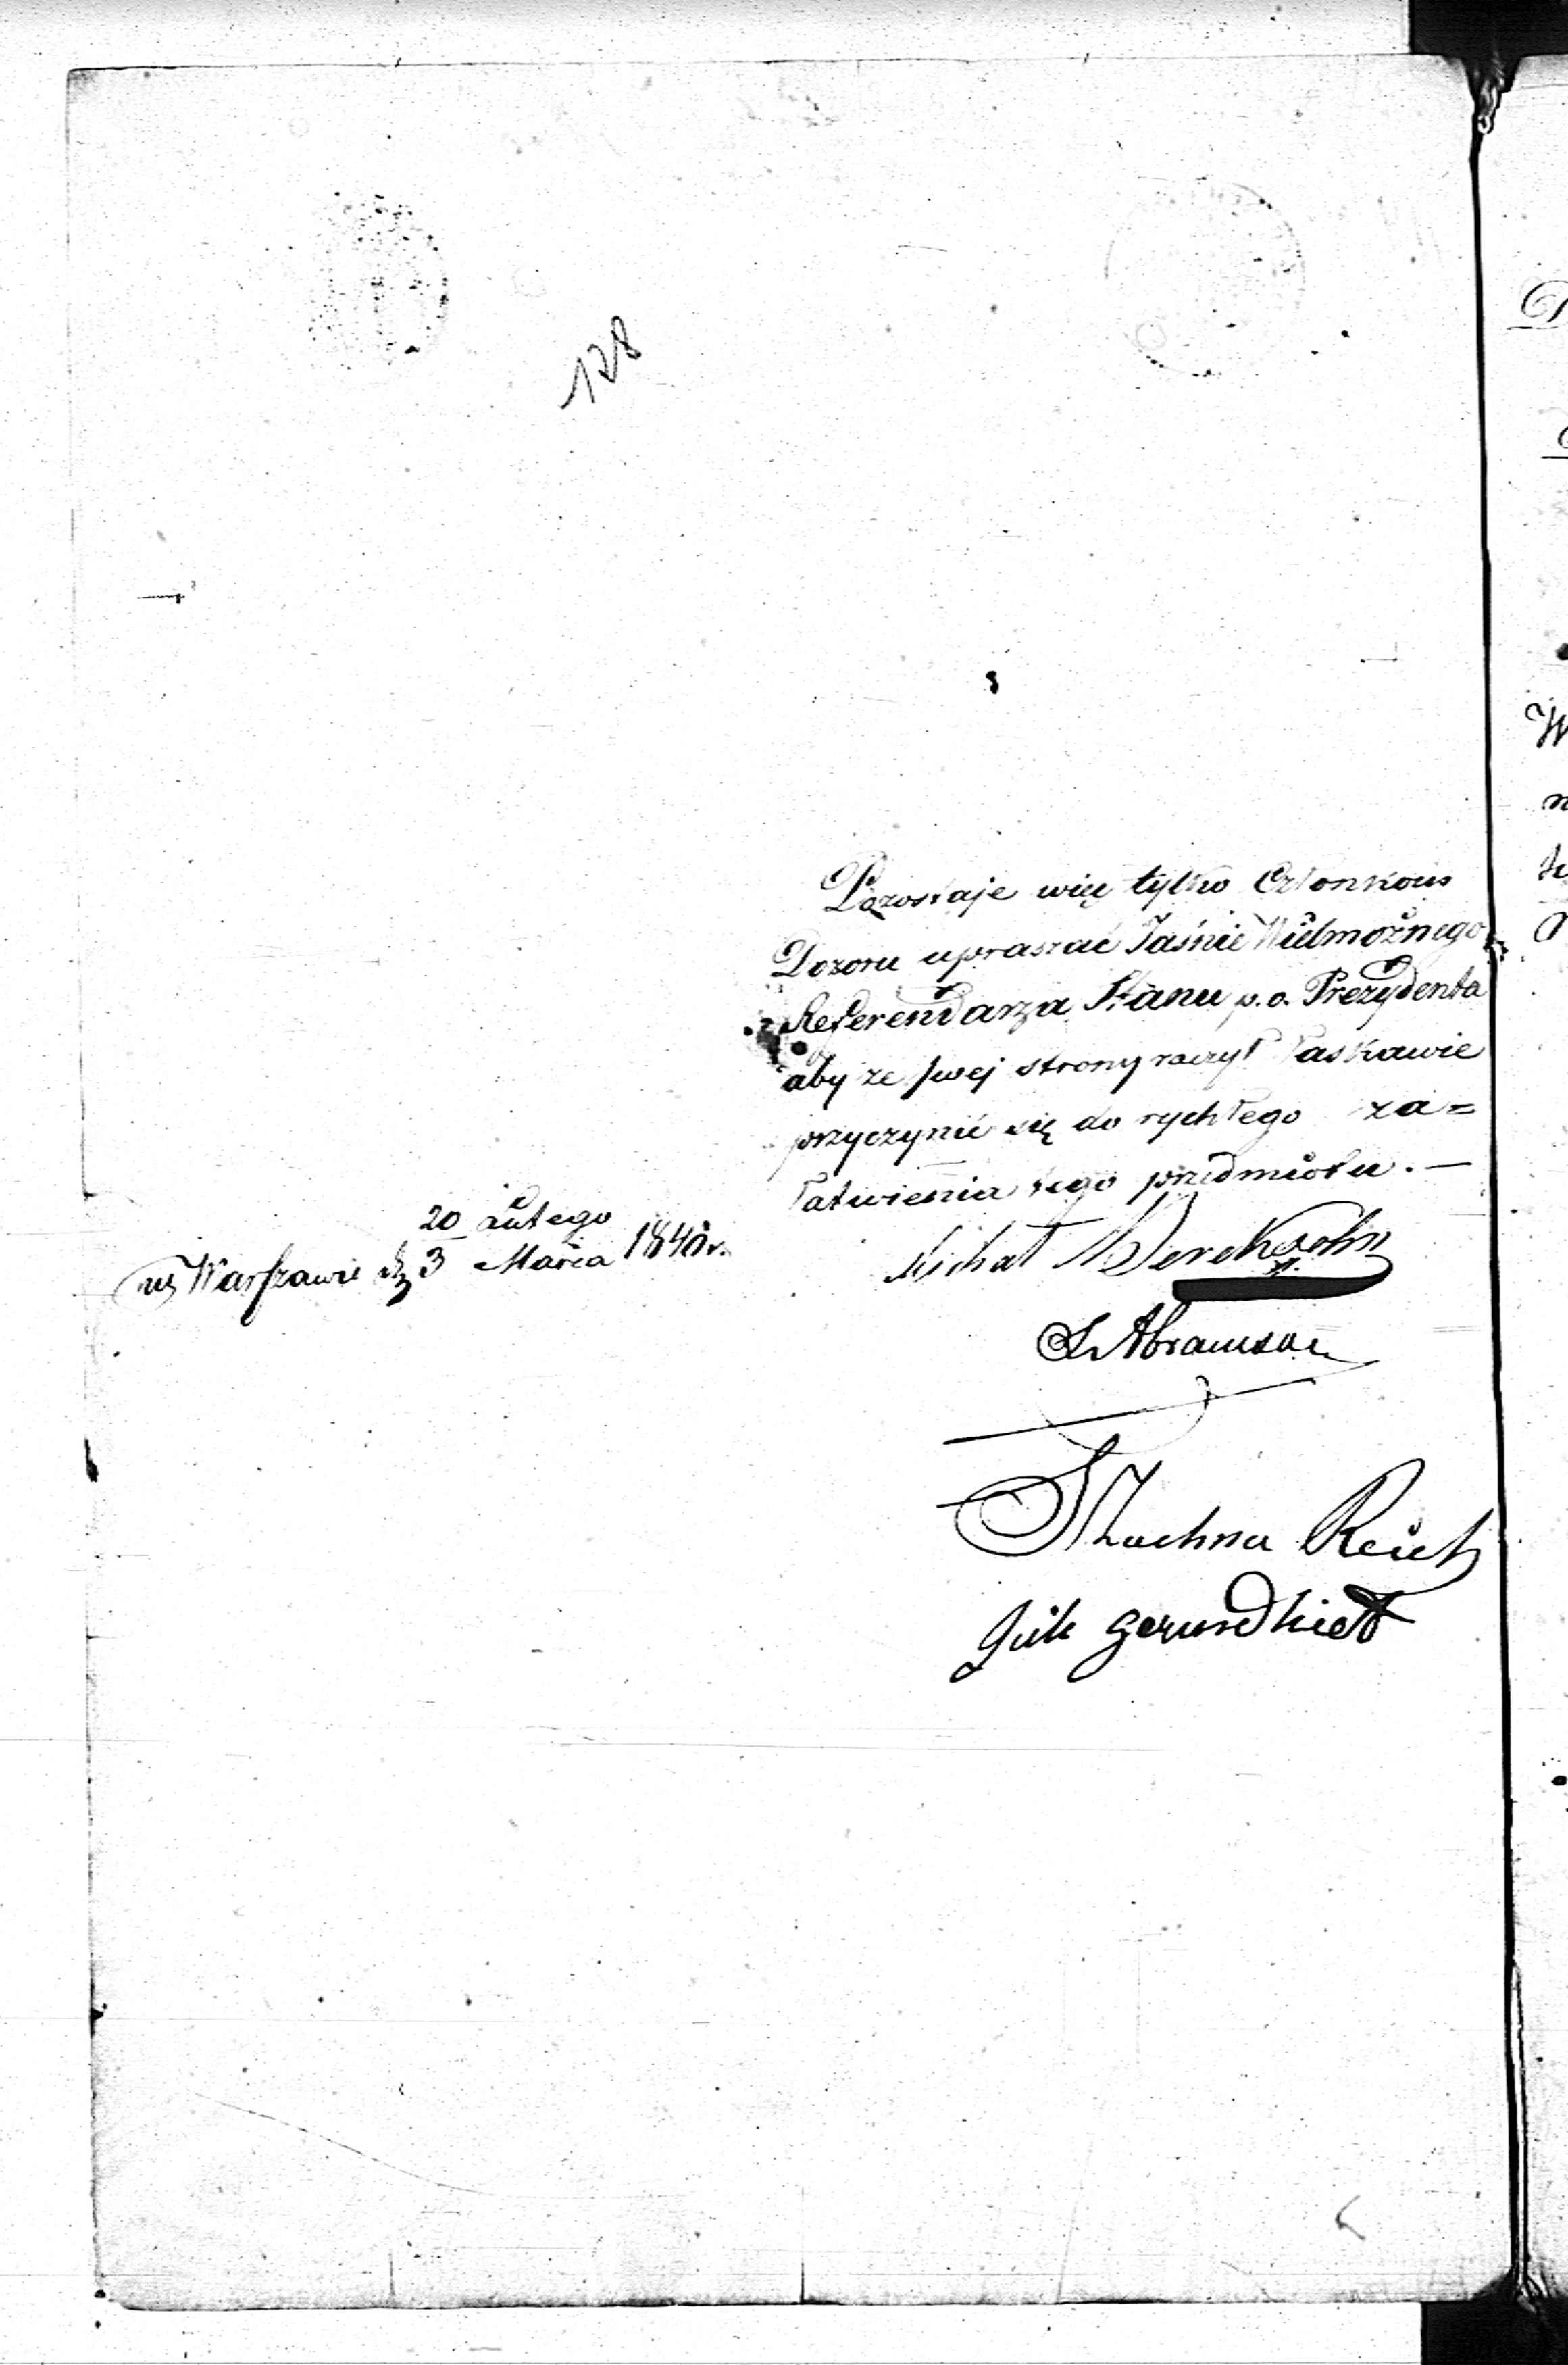 128
Pozostaje więc tylko Członkom
Dozoru upraszać Jaśnie Wielmożnego
Referendarza Stanu p.o. Prezydenta
aby ze swej strony raczył łaskawie
przyczynić się do rychłego za=
łatwienia tego przedmiotu. —
w Warszawie d. 20 Lutego
3 Marca 1840 r.
Michał
S. Abramson
Szachna Reich